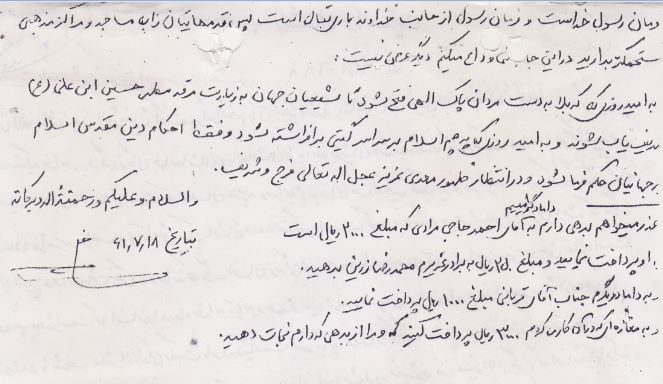 زمان رسول خداست و زمان رسول از جانب خداوند تبارک و تعالی است پس قدمهایتان را به مساجد و مراکز مذهبی
مستحکمتر بدارید در این جا با شما وداع میکنم دیگر عرضی نیست:
به امید روزی که کربلا به دست مردان پاک الهی فتح شود تا شیعیان جهان به زیارت مرقد مطهر حسین ابن علی (ع)
شرفیاب شوند و به امید روزی که پرچم اسلام بر سراسر گیتی برافراشته شود و فقط احکام دین مقدس اسلام
بر جهانیان حکم فرما شود و در انتظار ظهور مهدی عزیز عجل اله تعالی فرج و شریف.
والسلام و علیکم و رحمته اله و برکاته
بتاریخ ۶۱,۷,۱۸
عذر میخواهم بدهی دارم به آقای احمد حاجی مرادی که مبلغ ۲۰۰۰ ریال است
به او پرداخت نمایید و مبلغ ۲۵۰ ریال به برادر عزیزم محمدرضا زرین بدهید.
و به داماد دیگرم جناب آقای قربانی مبلغ ۱۰۰۰ ریال پرداخت نمایید.
و به مغازه ای که در آن کار میکردم ۳۰۰۰ ریال پرداخت کنید که مرا از بدهی که دارم نجات دهید.